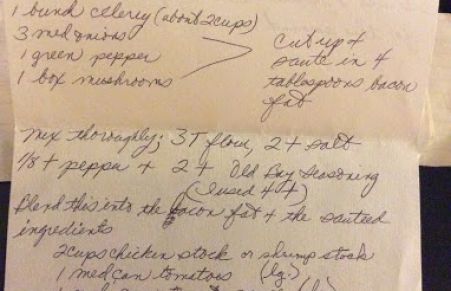 1 bunch celery (about 2 cups)
3 med onions
1 green pepper
1 box mushrooms
cut up &
saute in 4
tablespoons bacon
fat
Mix thoroughly; 3T flour, 2 t salt
1/8 t pepper + 2 t Old Bay Seasoning
(I used 4 t)
Blend this into the bacon fat & the sauteed
ingredients
2 cups chicken stock or shrimp stock
1 med can tomatoes (lg.)